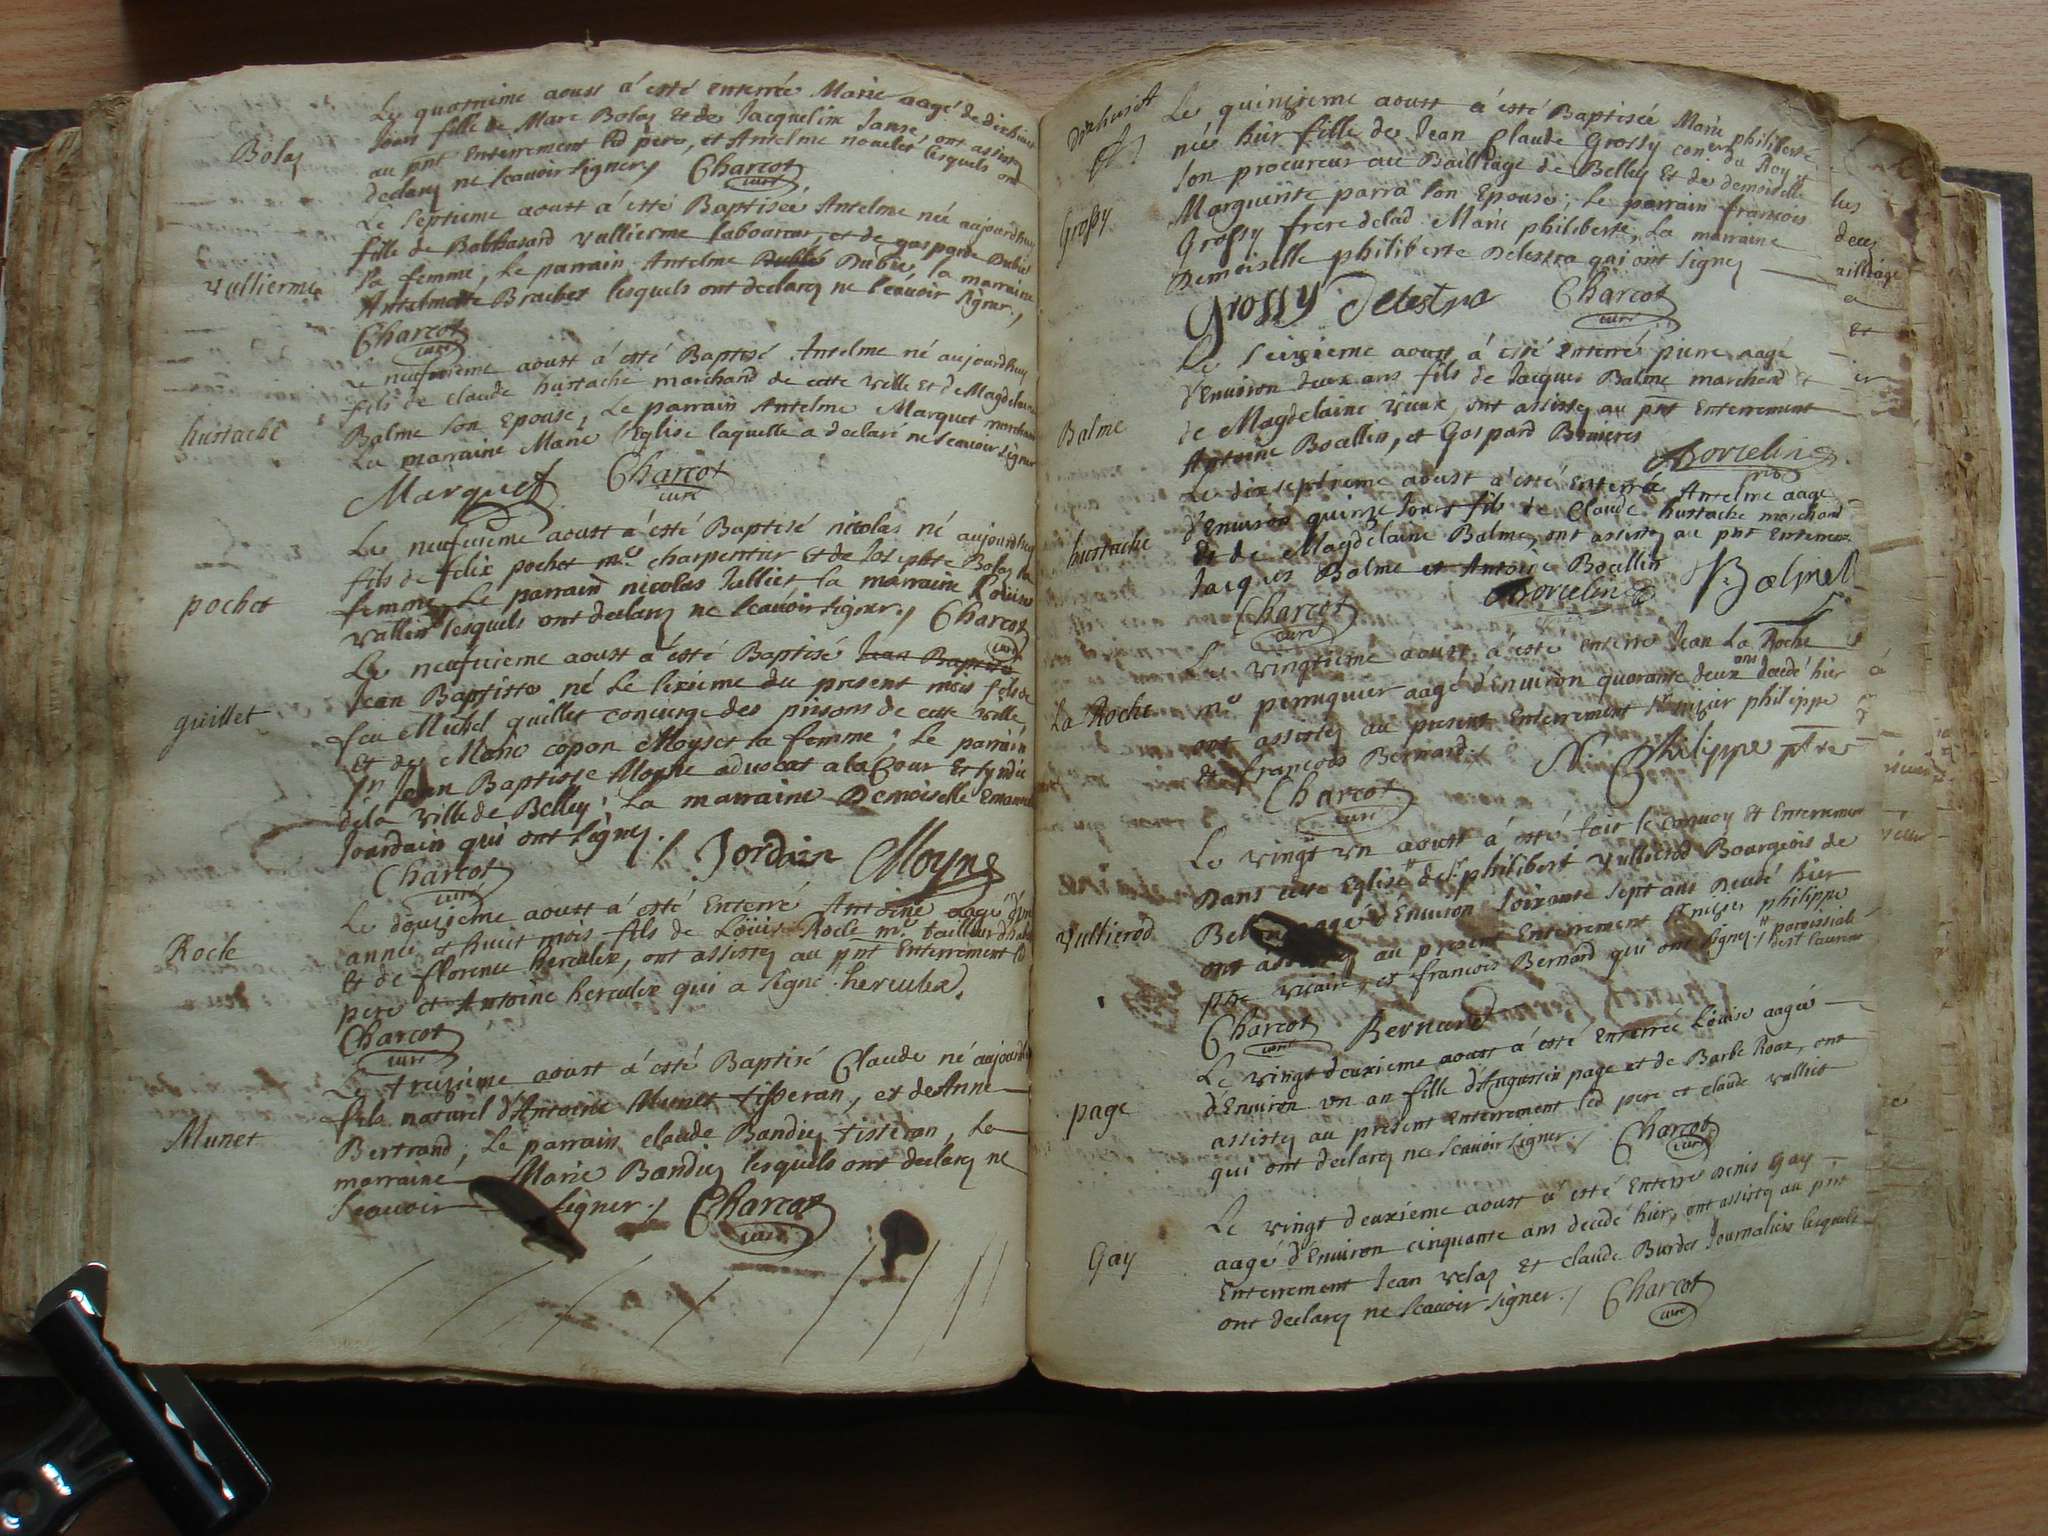 Le quatrieme aoust à esté enterrée Marie aagé de dixhuict
Bolaz
Jour fille de Marc Bolaz Et de Jacqueline Janse, ont assisté
au pnt Enterrement led pere, et Antelme lesquels ont
declarez ne scauoir signer Charcot
curé
Le septieme aoust à esté Baptisée Antelme née aujourdhuy
fille de Balthasard vullierme laboureur, et de gasparde Dubié
vullierme
sa femme, Le parrain Antelme Dubié, la marraine
Antelmette Brachet lesquels ont declarez ne scauoir signer,
Charcot
curé
Le neufuieme aoust à esté Baptisé Antelme né aujourdhuy
fils de claude hustache marchand de cette ville Et de Magdelaine
hustache
Balme son Epouse, Le parrain Antelme Marquet marchand
La marraine Marie l'Eglise laquelle a declaré ne scauoir signer
Marquet Charcot
curé
Le neufuieme aoust à esté Baptisé nicolas né aujourdhuy
fils de felix pochet me charpentier Et de Josephte Bolaz sa
pochet
femme, Le parrain nicolas Jullier la marraine Louise
vallin lesquels ont declarez ne scauoir signer, Charcot
curé
Le neufuieme aoust à esté Baptisé Jean Baptiste
Jean Baptiste né Le sixieme du present mois fils de
guillet
feu Michel guillet concierge des prisons de cette ville,
et de Marie copon Moyset sa femme; Le parrain
Sr Jean Baptiste Moyne aduocat a la Cour Et syndic
de la ville de Belley; La marraine Demoiselle Emanuel
Jourdain qui ont signez. / Jordain Moyne
Charcot
curé
Le douzieme aoust à esté Enterré Antoine aagé d'une
Rocle
année et huict mois fils de Louis Rocle me tailleur d'habit
Et de florence herculex, ont assistez au pnt Enterrement led
pere et Antoine herculex qui a signé. herculex.
Charcot
curé
Le treizieme aoust à esté Baptisé Claude né aujourdhuy
fils naturel d'Antoine Munet tisseran, et de Anne
Munet
Bertrand, Le parrain claude Bandiez tisseran, La
marraine Marie Bandiez lesquels ont declarez ne
scauoir signer. / Charcot
curé
dixhuict
Le quinzieme aoust à esté Baptisée Marie philiberte
née hier fille de Jean Claude Grossy coner du Roy et
Grossy
son procureur au Bailliage de Belley Et de demoiselle
Marguerite parra son Epouse; Le parrain francois
Grossy frere de lad Marie philiberte, La marraine
Demoiselle philiberte Delestra qui ont signez
Grossy Delestra Charcot
curé
Le seizieme aoust à esté Enterré pierre aagé
d'Enuiron deux ans fils de Jacques Balme marchand Et
Balme
de Magdelaine vieux, ont assistez au pnt Enterrement
Antoine Bocallin, et Gaspard Bruieres
Borcelin
Le dixseptieme aoust à esté Enterré Antelme aagé
d'Enuiron quinze Jours fils de Claude hustache marchand
hustache
Et de Magdelaine Balme, ont assistez au pnt Enterrement
Jacques Balme et Antoine Bocallin
Charcot Borcelin Balme
curé
Le vingtieme aoust à esté enterré Jean La Roche
La Roche
me perruquier aagé d'Enuiron quarante deux ans decedé hier
ont assistez au present Enterrement Sr nizier philippe
Et francois Bernard. N. Philippe ptre
Charcot
curé
Le vingt vn aoust à esté fait le conuoy Et Enterrement
Dans cette Eglise de Sr philibert vullierod Bourgeois de
vullierod
Belley aagé d'Enuiron soixante sept ans Decedé hier
ont assistez au present Enterrement Sr nizier philippe
ptre vicaire, et francois Bernard qui ont signez. / paroissiale
de st laurent
Charcot Bernard
curé
Le vingt deuxieme aoust à esté Enterrée Louise aagée
d'Enuiron vn an fille d'Augustin page et de Barbe Roax, ont
page
assistez au present Enterrement led pere et claude vulliet
qui ont declarez ne scauoir signer. / Charcot
curé
Le vingt deuxieme aoust à esté Enterré Denis Gay
aagé d'Enuiron cinquante ans decedé hier, ont assistez au pnt
Gay
Enterrement Jean velaz Et claude Burdet Journaliers lesquels
ont declarez ne scauoir signer. / Charcot
curé